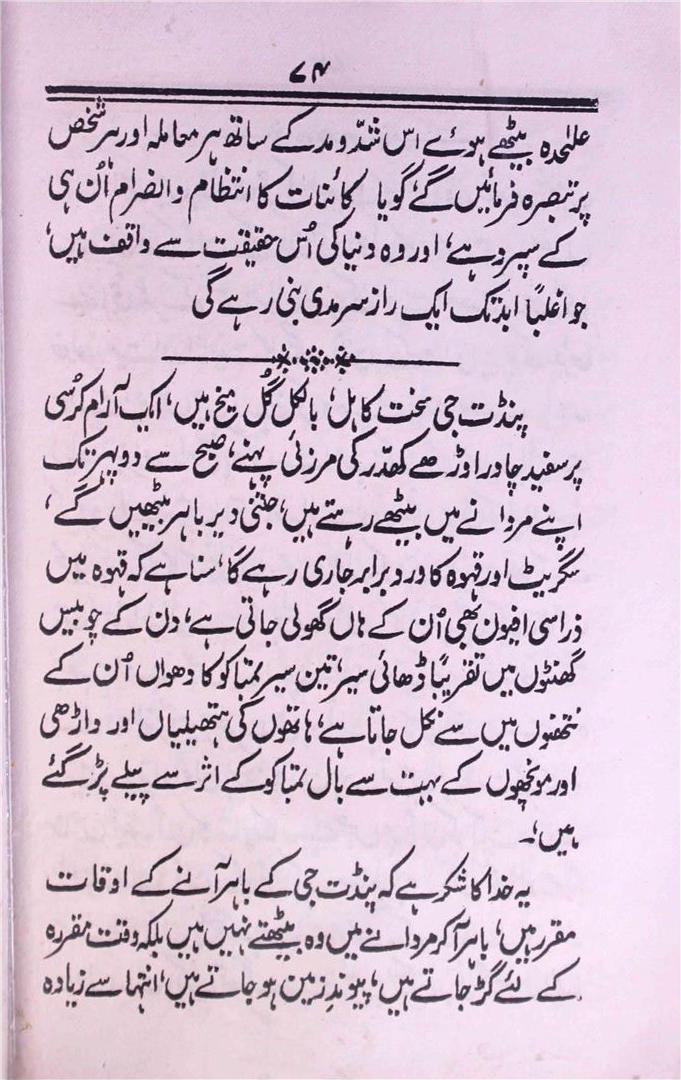 ۷۴
علٰحدہ بیٹھے ہوئے اس شدّومد کے ساتھ ہر معاملہ اور ہر شخص
پر تبصرہ فرمائیں گے گویا کائنات کا انتظام و انصرام اُن ہی
کے سپرد ہے، اور وہ دنیا کی اُس حقیقت سے واقف ہیں،
جو اغلباً ابد تک ایک راز سرمدی بنی رہے گی
پنڈت جی سخت کاہل، بالکل گل میخ ہیں، ایک آرام کرسی
پر سفید چادر اوڑھے کھدّر کی مرزئی پہنے، صبح سے دوپہر تک
اپنے مردانے میں بیٹھے رہتے ہیں، جتنی دیر باہر بیٹھیں گے،
سگریٹ اور قہوہ کا ورد برابر جاری رہے گا، سنا ہے کہ قہوہ میں
ذراسی افیون بھی اُن کے ہاں گھولی جاتی ہے، دن کے چوبیس
گھنٹوں میں تقریباً ڈھائی سیر، تین سیر تمباکو کا دھواں اُن کے
نتھنوں میں سے نکل جاتا ہے، ہاتھوں کی ہتھیلیاں اور داڑھی
اور مونچھوں کے بہت سے بال تمباکو کے اثر سے پیلے پڑ گئے
ہیں،۔
یہ خدا کا شکر ہے کہ پنڈت جی کے باہر آنے کے اوقات
مقرر ہیں، باہر آکر مردانے میں وہ بیٹھتے نہیں ہیں بلکہ وقت مقررہ
کے لئے گڑ جاتے ہیں، پیوندِ زمین ہو جاتے ہیں، انتہا سے زیادہ